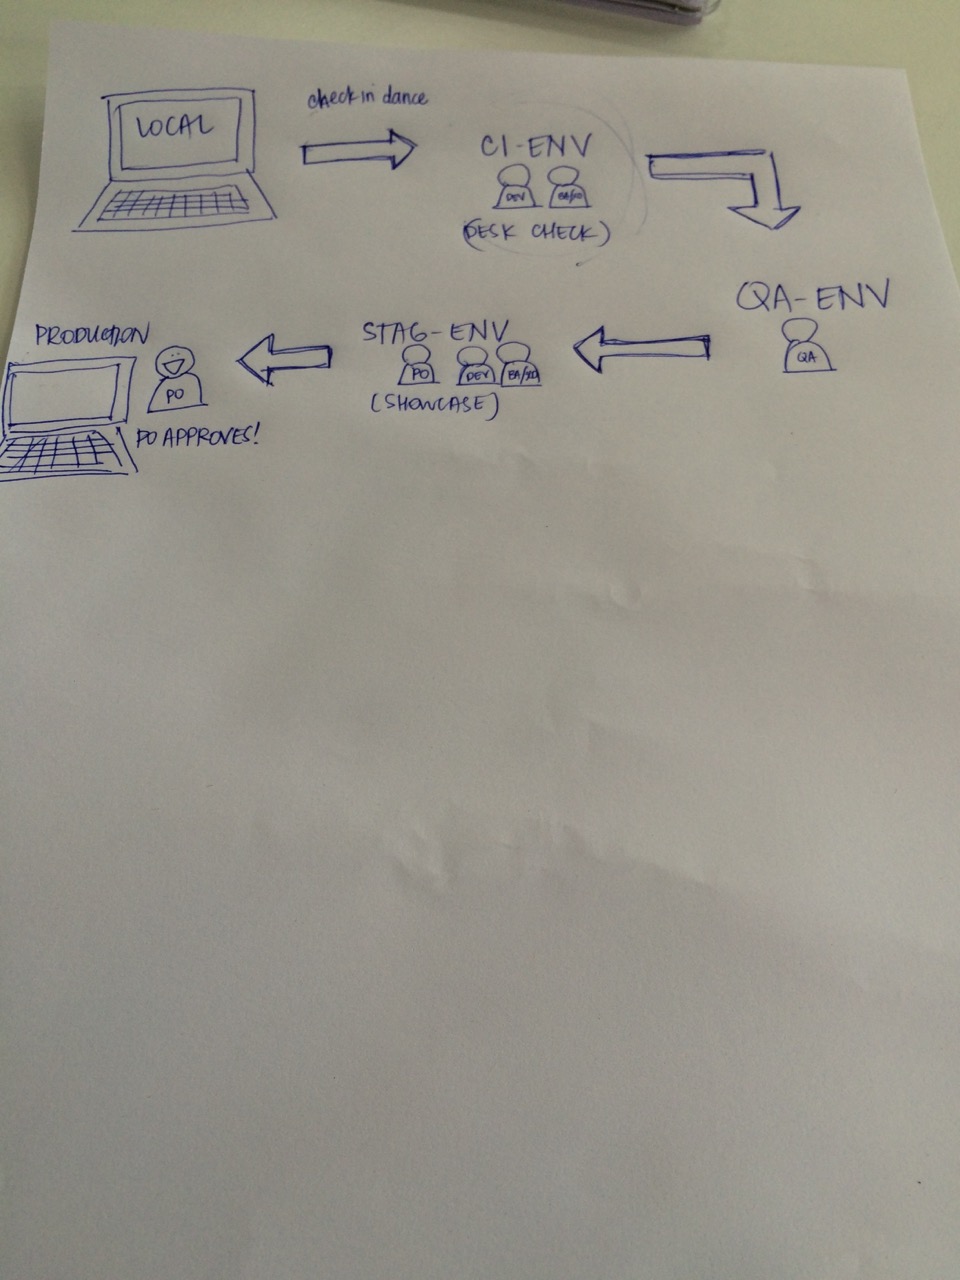 LOCAL
check in dance
CI-ENV
DEV
(DESK CHECK)
QA-ENV
QA
STAG-ENV
PO DEV
(SHOWCASE)
PRODUCTION
PO
PO APPROVES!